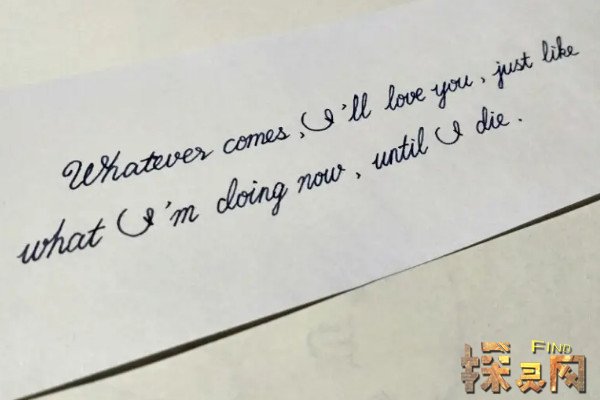 Whatever comes, I'll love you, just like
what I'm doing now, until I die.
FIND
探灵网